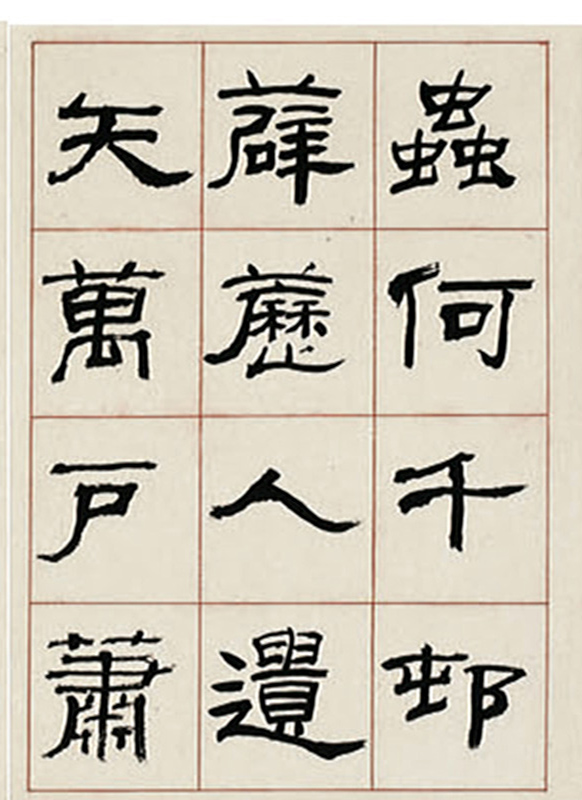 蟲何千邨
薜藶人遺
矢萬戸蕭